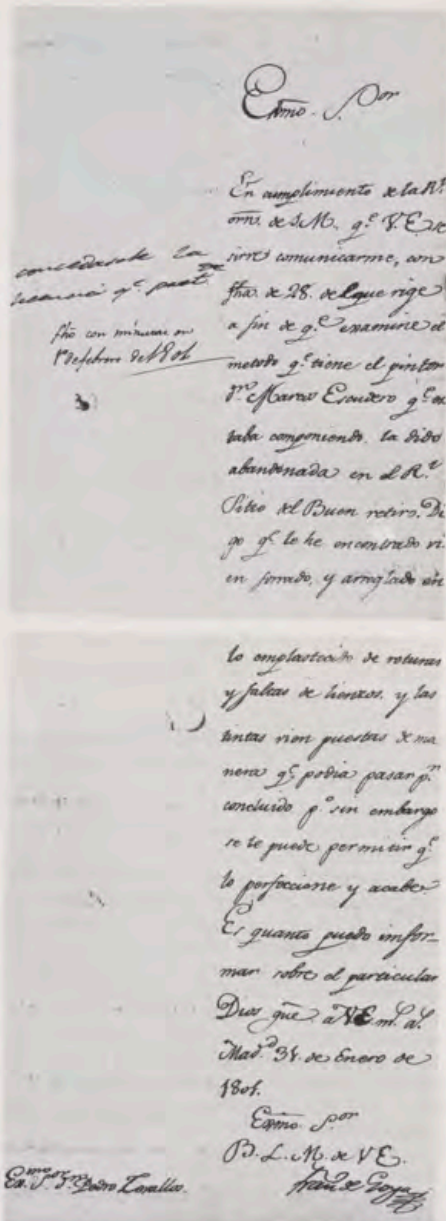 Exmo. S.or
En cumplimiento de la R.l
orn. de S.M. q.e V.E. se
sirve comunicarme, con
fha. de 28. del que rige
a fin de q.e examine el
metodo q.e tiene el pintor
D.n Marcos Escudero q.e es
taba componiendo la dido
abandonada en el R.l
Sitio del Buen retiro. Di
go q.e lo he encontrado vi
en forrado, y arreglado en
concedasele la
q.e
fho con minuta en
1º de febrero de 1801
lo emplastecido de roturas
y faltas de lienzos, y las
tintas vien puestas de ma
nera q.e podia pasar p.r
concluido p.o sin embargo
se le puede permitir q.e
lo perfeccione y acabe.
Es quanto puedo infor-
mar sobre el particular
Dios gue. a V.E. m.s a.s
Mad.d 31. de Enero de
1801.
Exmo. S.or
B. L. M. de V.E.
Fran.co de Goya
Ex.mo S.or D.n Pedro Cevallos.